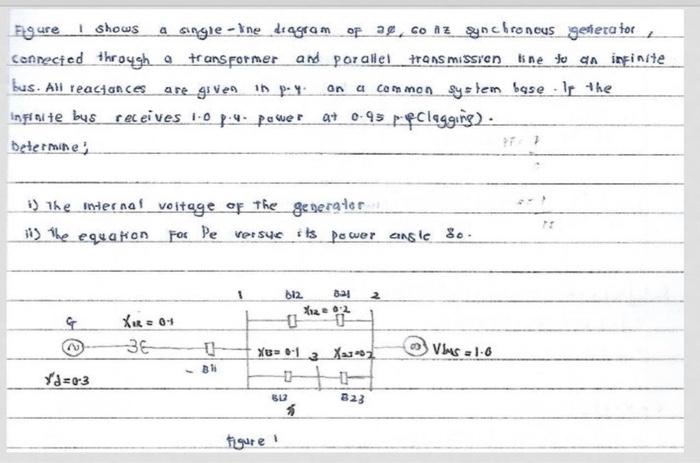 Figure 1 shows a single-line diagram of 3Ø, 60 Hz synchronous generator,
connected through a transformer and parallel transmission line to an infinite
bus. All reactances are given in p.u. on a common system base. If the
infinite bus receives 1.0 p.u. power at 0.95 p.f (lagging).
Determine;
i) The internal voltage of the generator
ii) The equation for Pe versus its power angle δo.
1 B12 B21 2
X12 = 0.2
G XTR = 0.1
X13 = 0.1 3 X23 = 0.2 ∞ VBUS = 1.0
B11
X'd = 0.3
B13 B23
figure 1